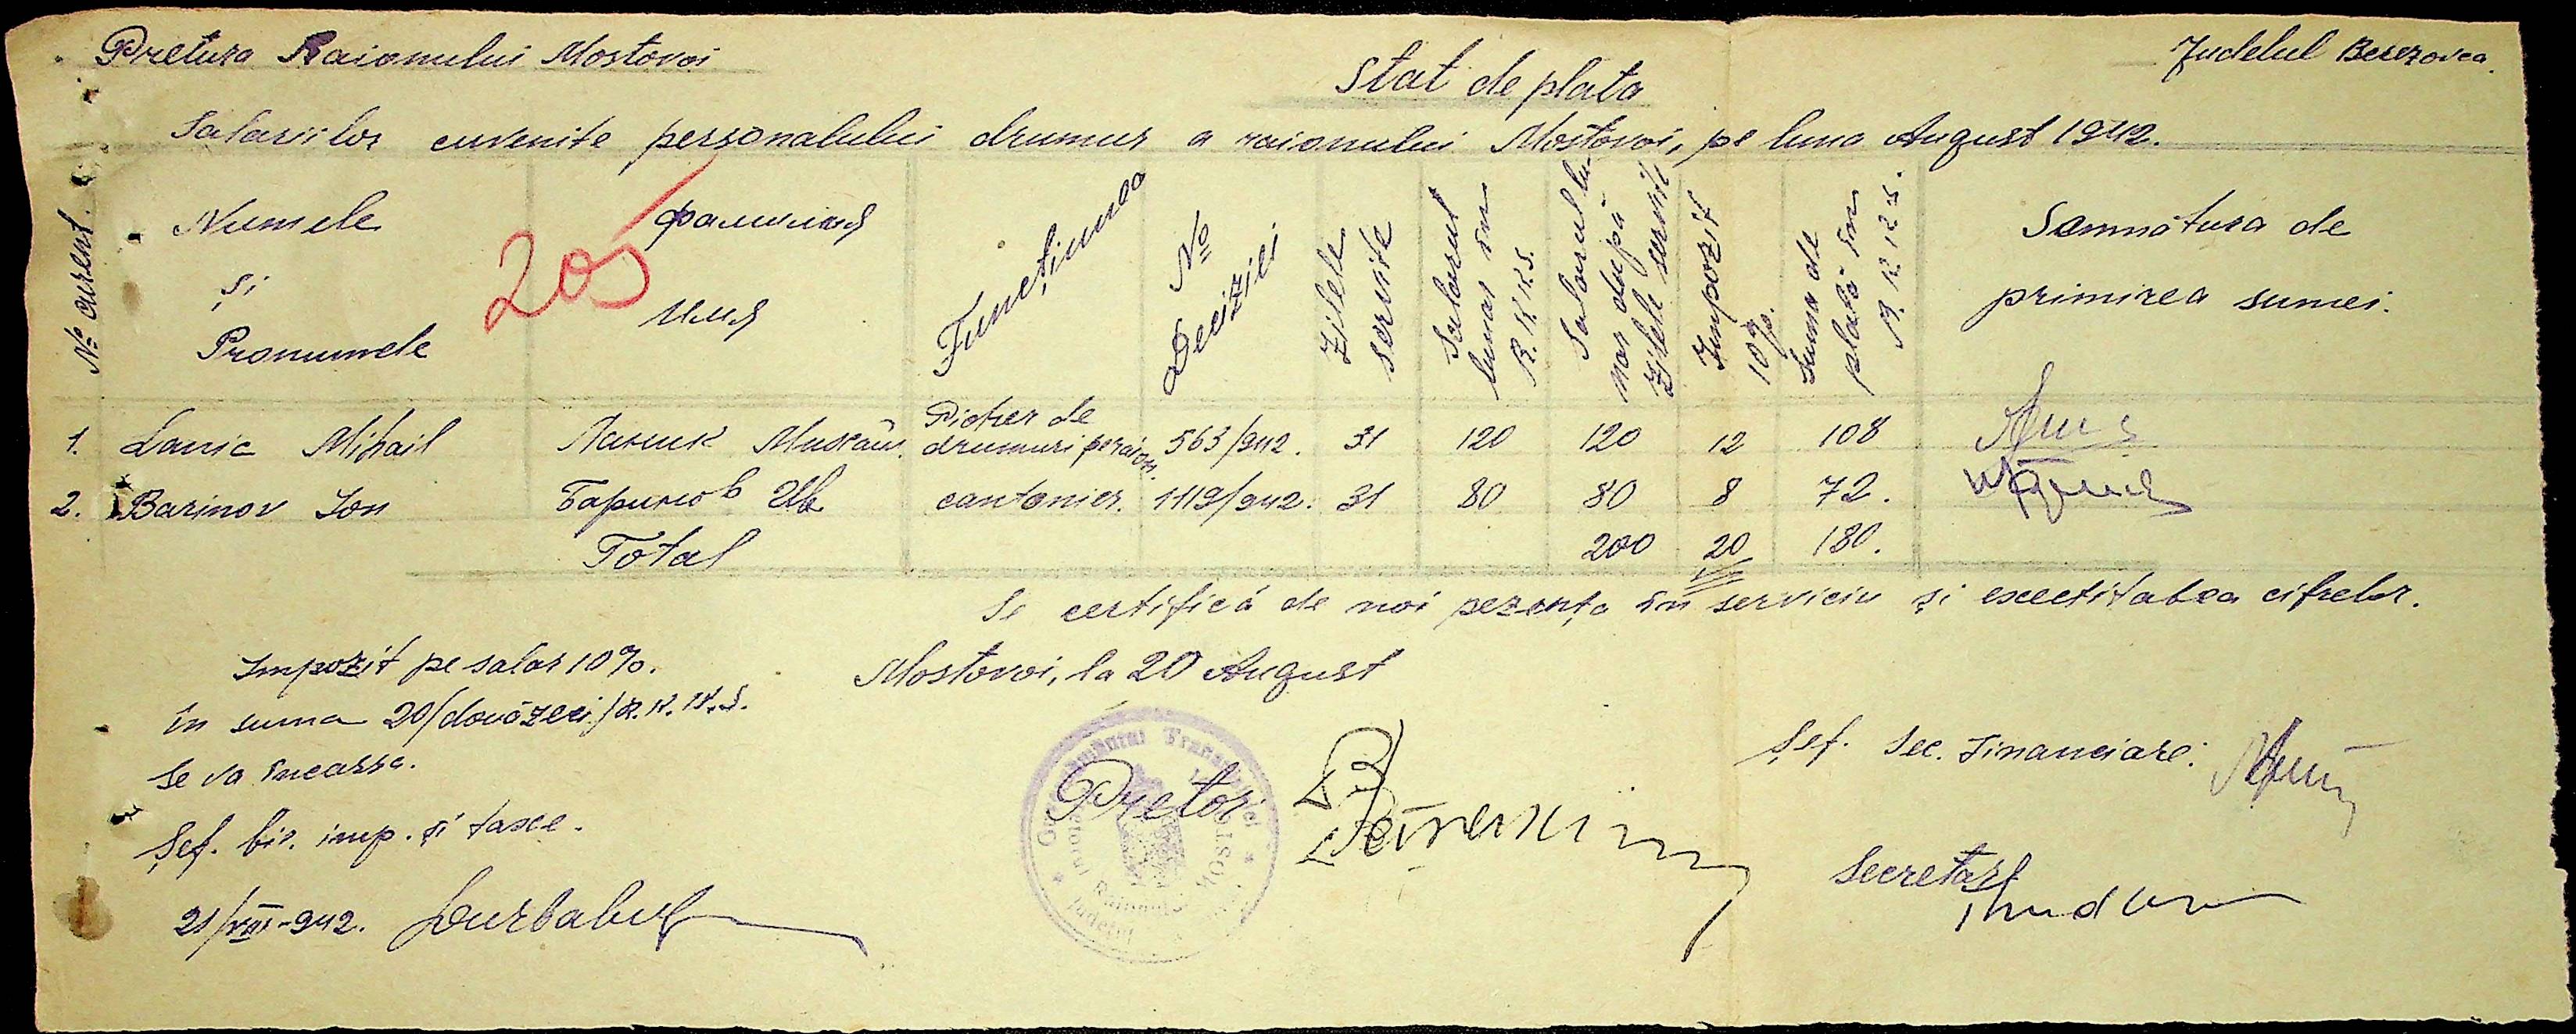 Pretura Raionului Mostovoi
Judelul Berezovca.
Stat de plata
Salariilor cuvenite personalului drumur a raionului Mostovoi, pe luna August 1942.
№ curent.
Numele
și
Pronumele
205
Фамилия
Имя
Funcțiunea
№ Deciziei
Zilele servite
Salarul lunar în R.K.K.S.
Salarul lunar după zilele servite
Impozit 10%.
Suma de plată în R.K.K.S.
Semnătura de
primirea sumei.
1. Lanic Mihail Ланик Михаил. Picher de drumuri pe raion. 563/942. 31 120 120 12 108
2. Barinov Ion Баринов Ив. cantonier. 1119/942. 31 80 80 8 72.
Total 200 20 180.
Se certifică de noi pezența în serviciu și exectitatea cifrelor.
Impozit pe salar 10%.
în suma 20/douăzeci/R.K.K.S.
se va încassa.
Șef. bir. imp. și taxe.
21/VIII-942.
Mostovoi, la 20 August
Pretor
Guvernământul Transnistriei
Județul
Șef. Sec. Financiare:
Secretar